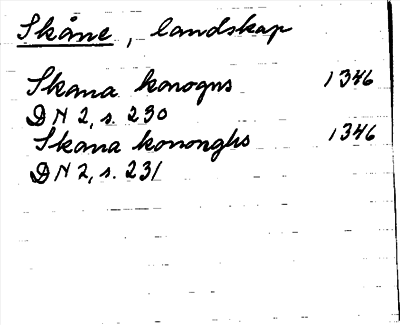 Skåne, landskap
Skana konogns 1346
DN 2, s. 230
Skana kononghs 1346
DN 2, s. 231